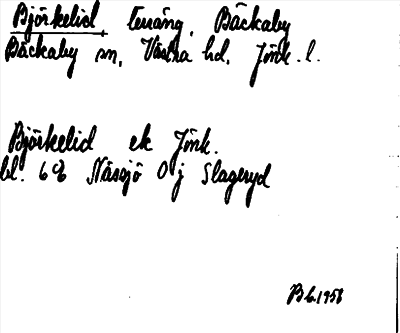 Björkelid, terräng, Bäckaby
Bäckaby sn, Västra hd, Jönk. l.
Björkelid ek Jönk.
bl. 6g Nässjö 0 j Slageryd
Bb.1958